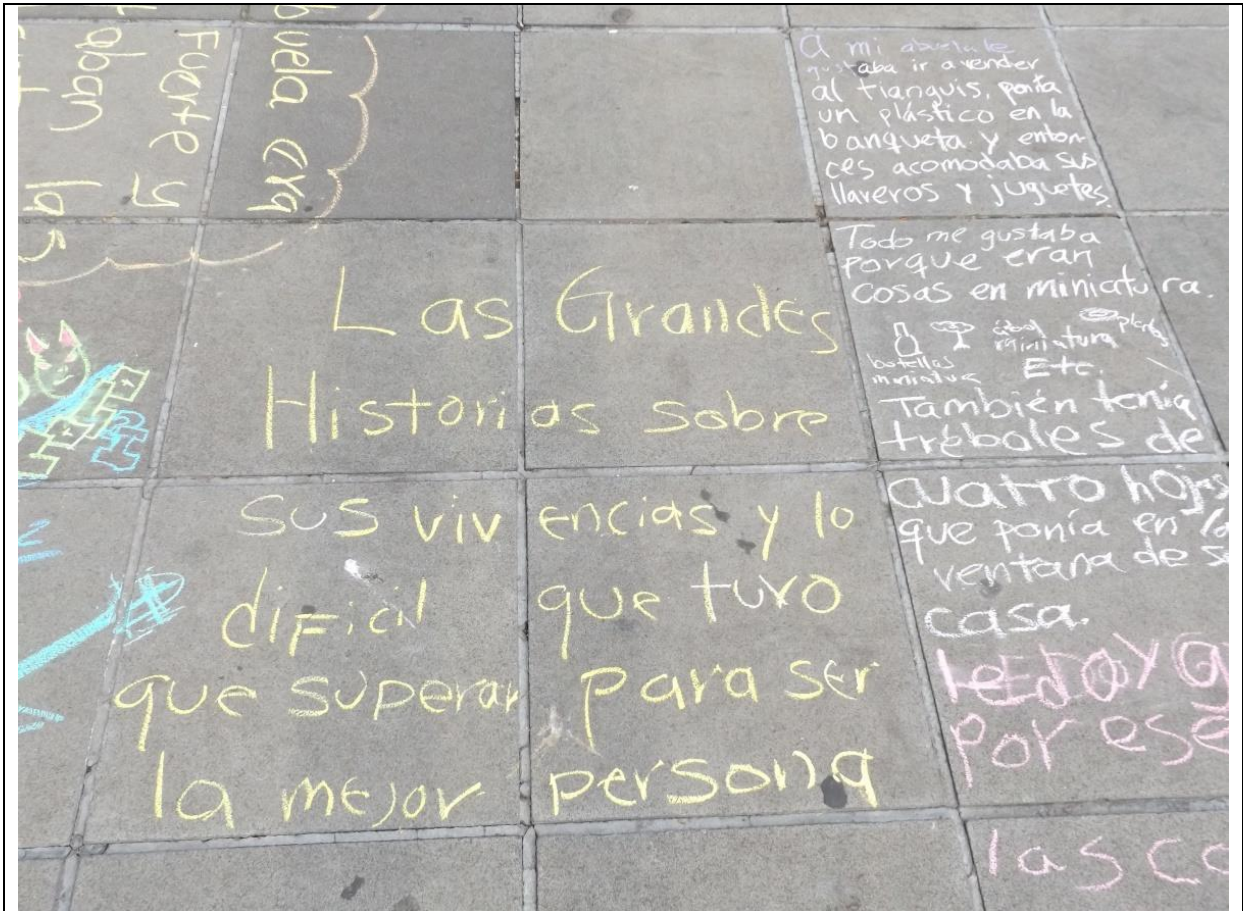 vela era
Fuerte y
aban las
Las Grandes
Historias sobre
sus vivencias y lo
dificil que tuvo
que superar para ser
la mejor persona
A mi abuela le
gustaba ir a vender
al tianguis, ponía
un plástico en la
banqueta y enton-
ces acomodaba sus
llaveros y juguetes.
Todo me gustaba
porque eran
cosas en miniatura.
botellas
miniatura
árbol
miniatura
plantas
Etc.
También tenía
tréboles de
cuatro hojas
que ponía en la
ventana de s
casa.
por ese
las co